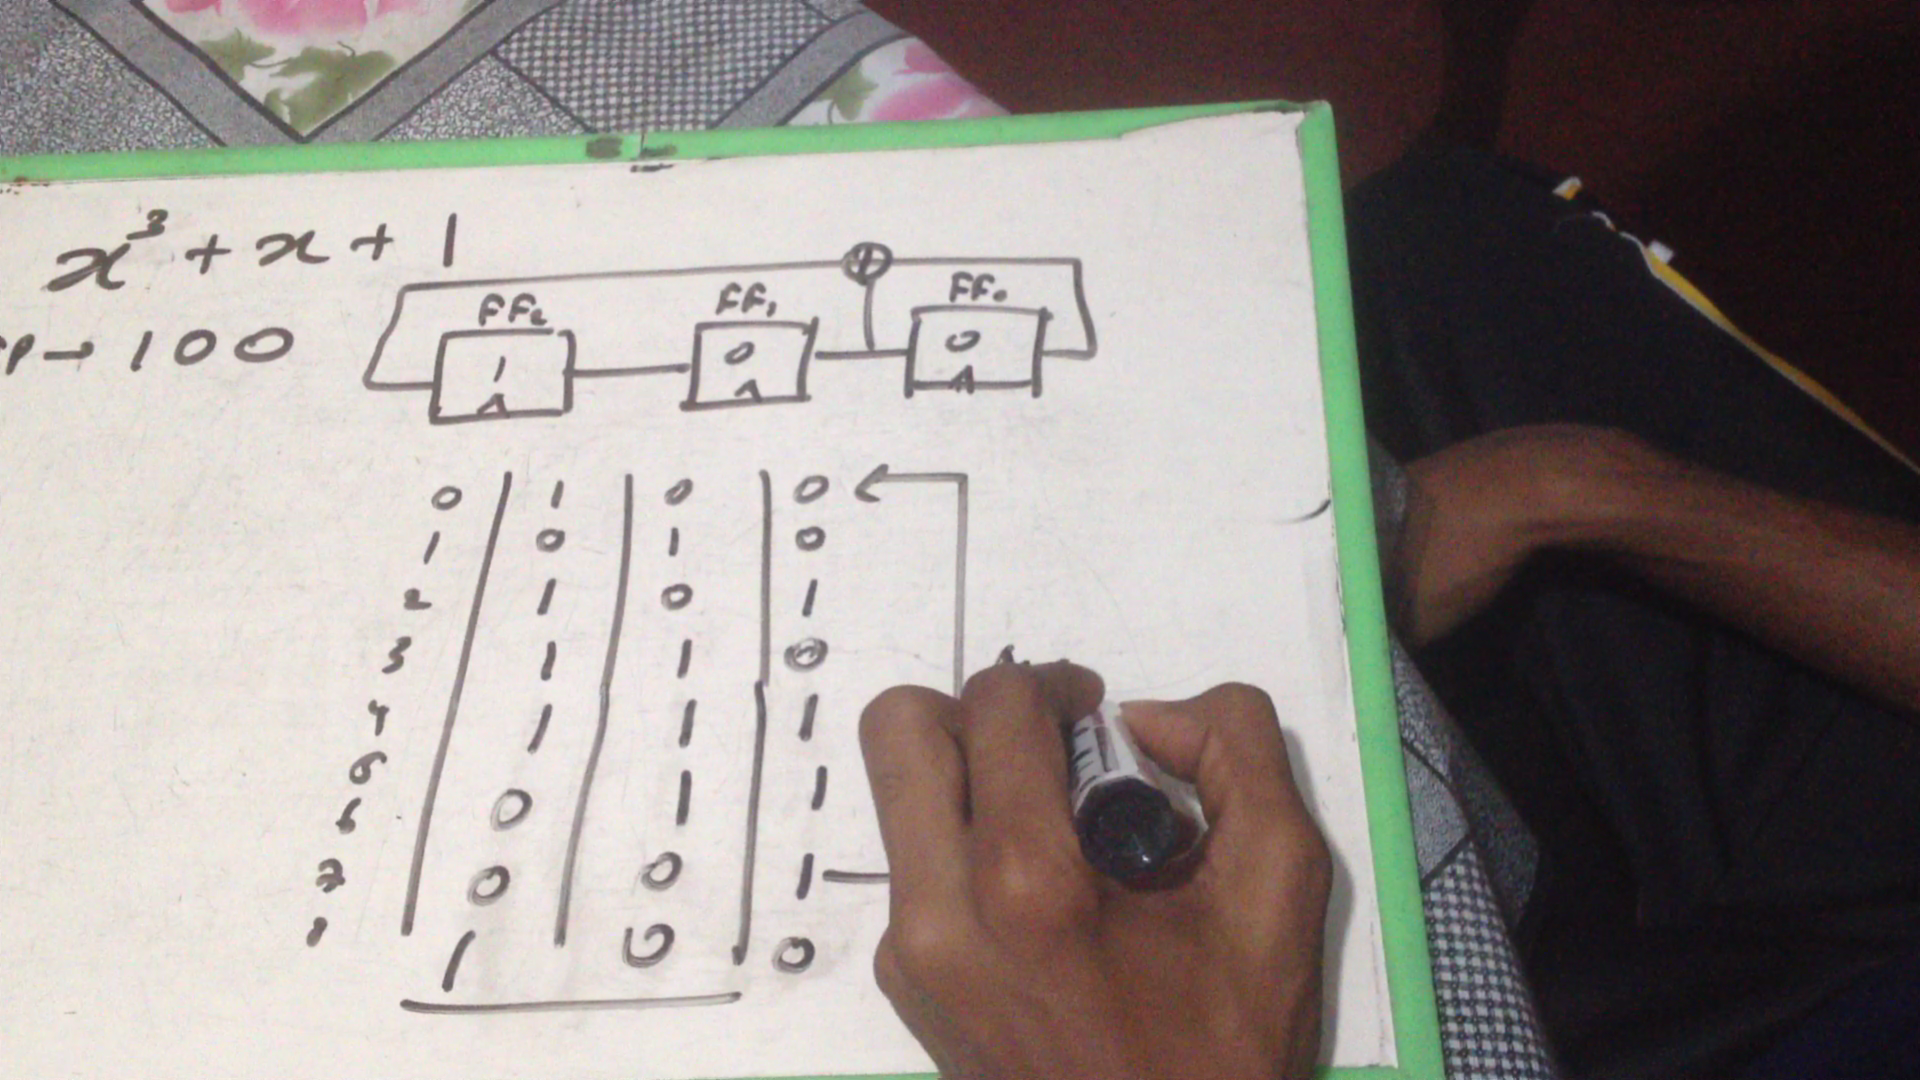 x³ + x + 1
→ 100
FF₂ FF₁ FF₀
1 0 0
0 | 1 | 0 | 0
1 | 0 | 1 | 0
2 | 1 | 0 | 1
3 | 1 | 1 | 0
4 | 1 | 1 | 1
5
6 | 0 | 1 | 1
7 | 0 | 0 | 1
1 | 0 | 0